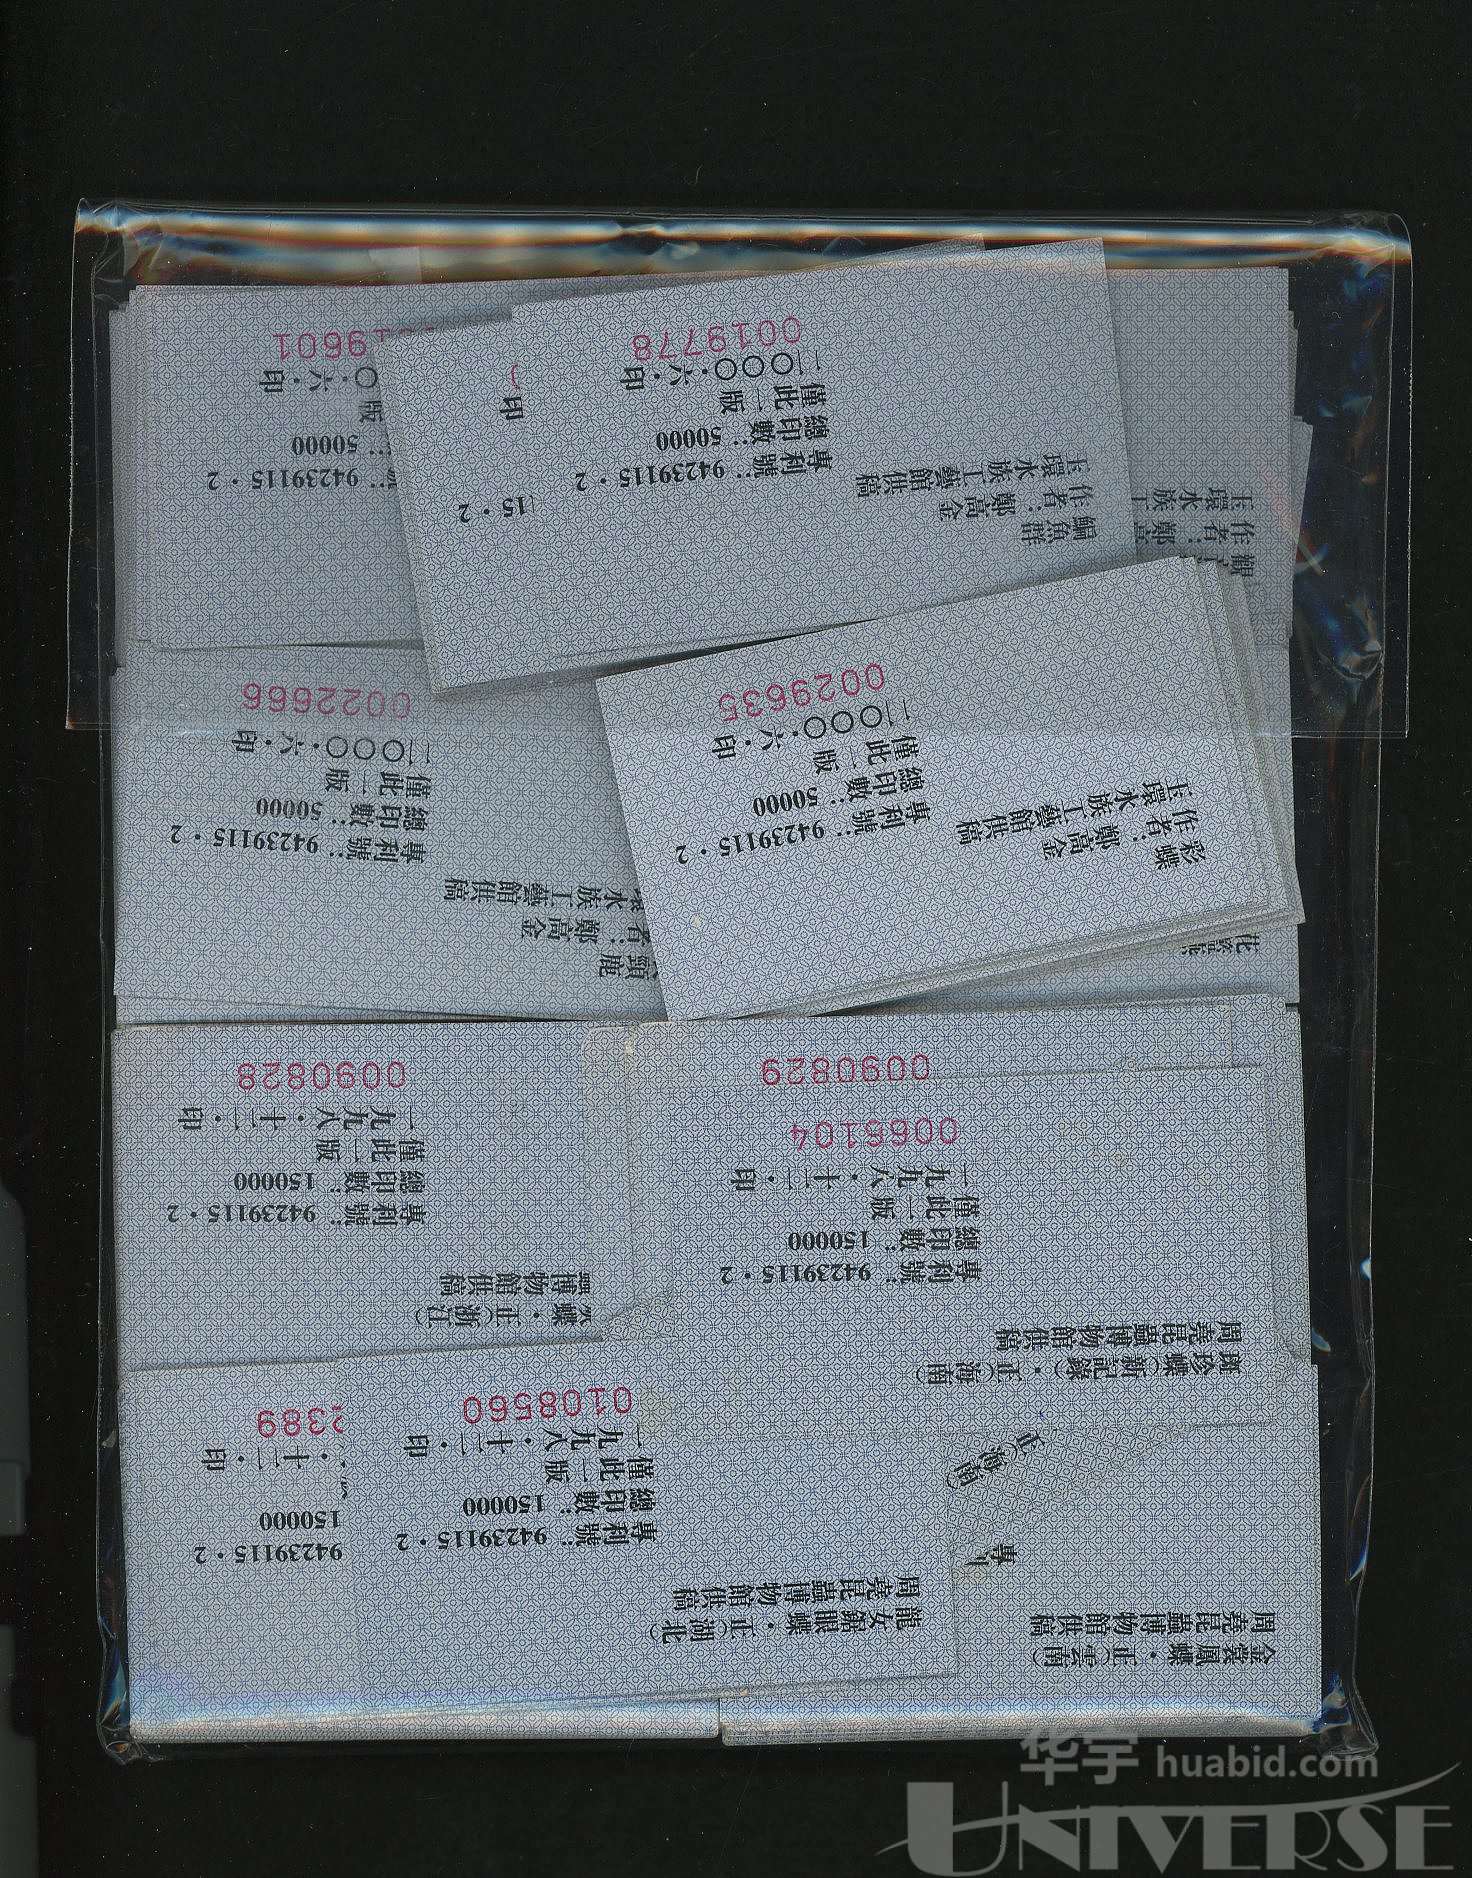 0019601
〇·六·印
版
50000
94239115·2
印
15·2
鯿魚群
作者：鄭高金
玉環水族工藝館供稿
專利號：94239115·2
總印數：50000
僅此一版
二〇〇〇·六·印
0019778
作者：鄭高
玉環水族工
頸鹿
者：鄭高金
水族工藝館供稿
專利號：94239115·2
總印數：50000
僅此一版
二〇〇〇·六·印
0022666
彩蝶
作者：鄭高金
玉環水族工藝館供稿
專利號：94239115·2
總印數：50000
僅此一版
二〇〇〇·六·印
0029635
蝶·正(浙江)
博物館供稿
專利號：94239115·2
總印數：150000
僅此一版
一九九八·十二·印
0090828
0090829
斑珍蝶(新記錄)·正(海南)
周堯昆蟲博物館供稿
專利號：94239115·2
總印數：150000
僅此一版
一九九八·十二·印
0066104
94239115·2
150000
·十二·印
2389
龍女鋸眼蝶·正(湖北)
周堯昆蟲博物館供稿
專利號：94239115·2
總印數：150000
僅此一版
一九九八·十二·印
0108560
正(海南)
專利
金裳鳳蝶·正(雲南)
周堯昆蟲博物館供稿
华宇 huabid.com
UNIVERSE